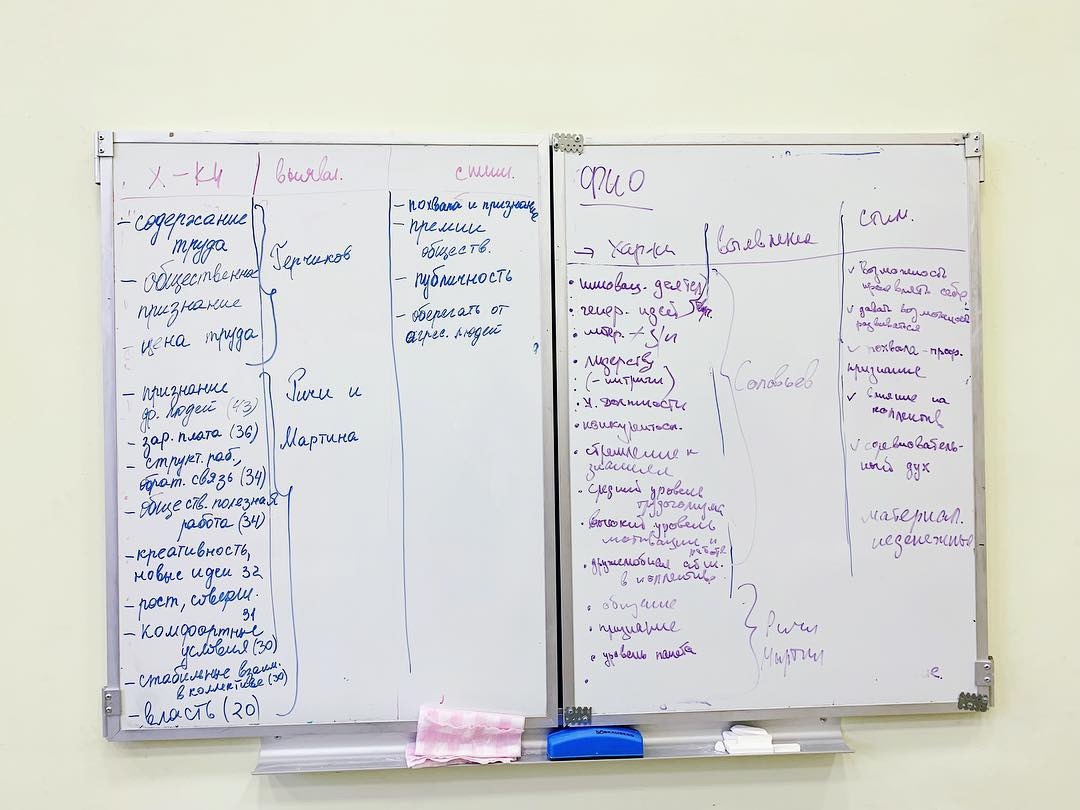 Х-КИ
выявл.
стим.
- содержание
труда
- общественное
признание
- цена труда
Герчиков
- признание
др. людей (43)
- зар. плата (36)
- структ. раб.,
обрат. связь (34)
- обществ. полезная
работа (34)
- креативность,
новые идеи 32
- рост, соверш.
31
- комфортные
условия (30)
- стабильные взаим.
в коллективе (30)
- власть (20)
Ричи и
Мартина
- похвала и признание
- премии
обществ.
- публичность
- оберегать от
агрес. людей
ФИО
→ Хар-ки
выявление
стим.
• инновац. деятел.
• генер. идей
• интер. + з/п
• лидерству
(- интриги)
• к. должности
• конкурентосп.
• стремление к
знаниям
• средний уровень
трудоголизма
• высокий уровень
мотивации к
работе
• дружелюбная атм.
в коллективе
• общение
• признание
• уровень
•
Соловьев
Ричи
Мартин
✓ возможность
проявлять себя
✓ давать возможность
развиваться
✓ похвала - проф.
признание
✓ влияние на
коллектив
✓ соревнователь-
ный дух
материал.
неденежные